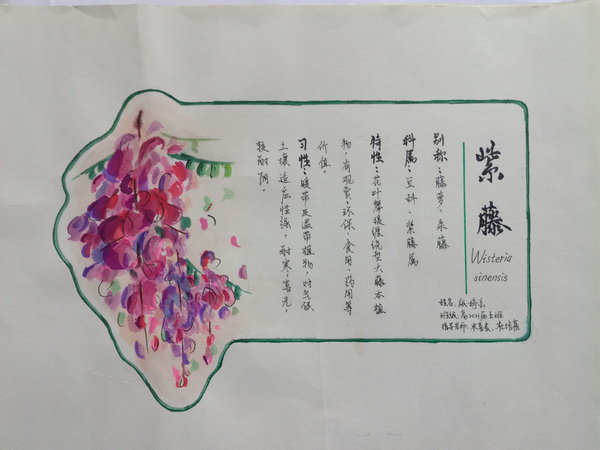 紫藤
Wisteria
sinensis
别称：藤萝、朱藤
科属：豆科、紫藤属
特性：花叶攀援缠绕型大藤本植
物，有观赏、环保、食用、药用等
价值。
习性：暖带及温带植物，对气候
土壤适应性强，耐寒，喜光，
较耐阴。
姓名：张
班级：高2021届五班
指导老师：